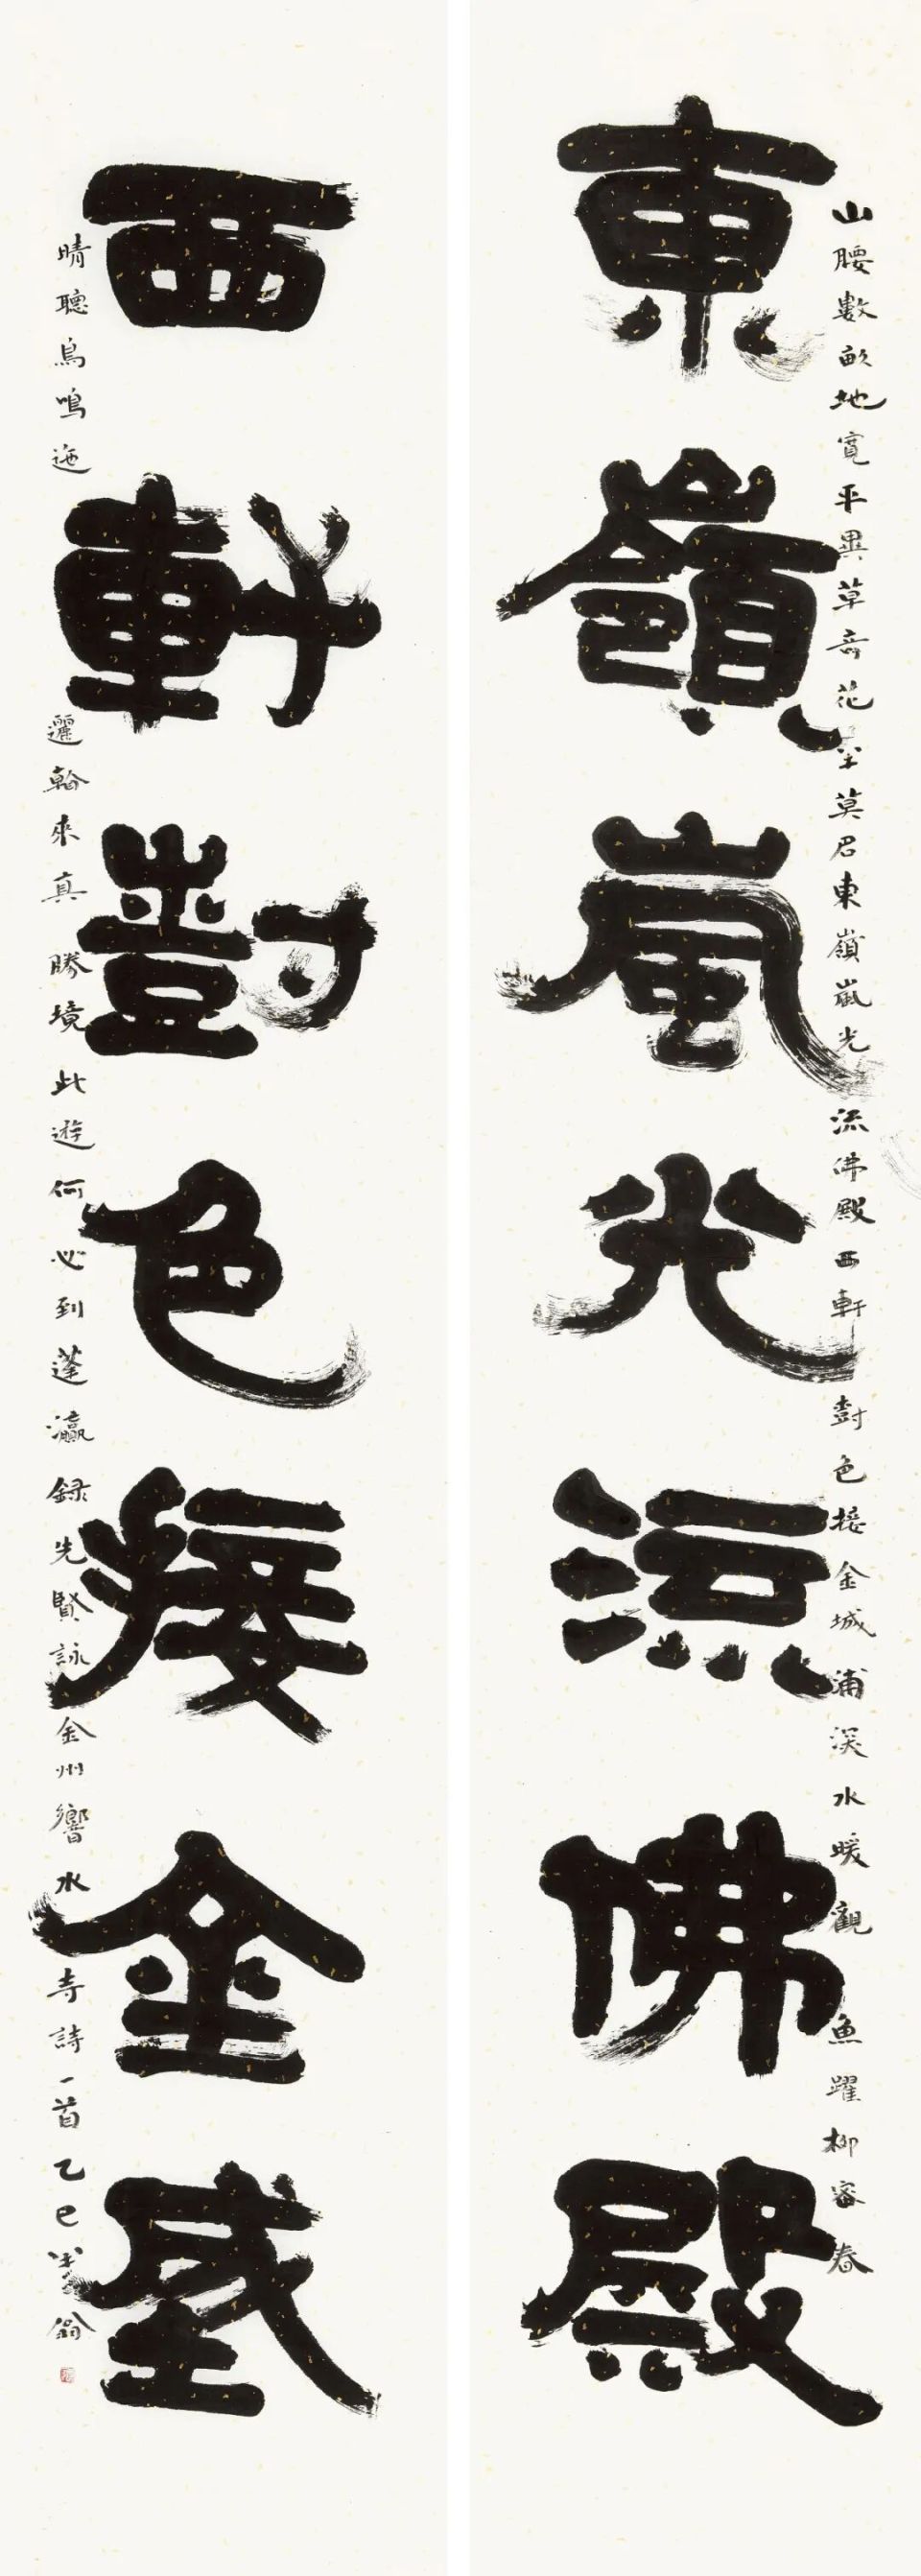 山腰數畝地寬平異草奇花半莫名東嶺嵐光流佛殿西軒樹色接金城浦深水暖觀魚躍柳密春
東嶺嵐光流佛殿
西軒樹色接金城
晴聽鳥鳴迤邐看來真勝境此遊何必到蓬瀛録先賢詠金州響水寺詩一首乙巳半翁